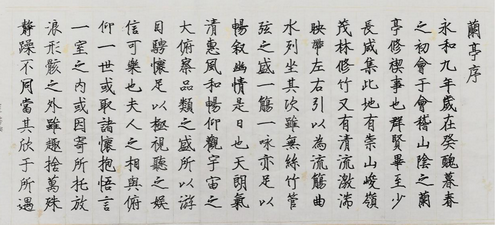 蘭亭序
永和九年歲在癸醜暮春
之初會于會稽山陰之蘭
亭修禊事也群賢畢至少
長咸集此地有崇山峻嶺
茂林修竹又有清流激湍
映帶左右引以為流觴曲
水列坐其次雖無絲竹管
弦之盛一觴一咏亦足以
暢叙幽情是日也天朗氣
清惠風和暢仰觀宇宙之
大俯察品類之盛所以游
目騁懷足以極視聽之娱
信可樂也夫人之相與俯
仰一世或取諸懷抱悟言
一室之内或因寄所托放
浪形骸之外雖趣捨萬殊
静躁不同當其欣于所遇